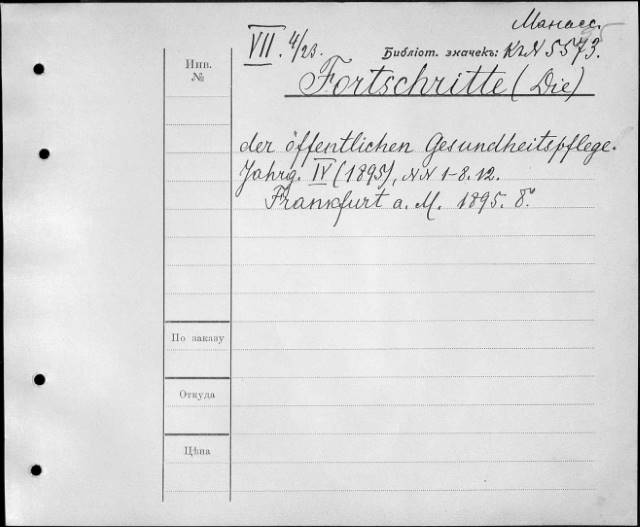 Манасс.
VII. 4/23.
Библіот. значекъ: К2N 5573.
Инв.
№
Fortschritte (Die)
der öffentlichen Gesundheitspflege.
Jahrg. IV (1895), NN 1-8.12.
Frankfurt a. M. 1895. 8°
По заказу
Откуда
Цѣна